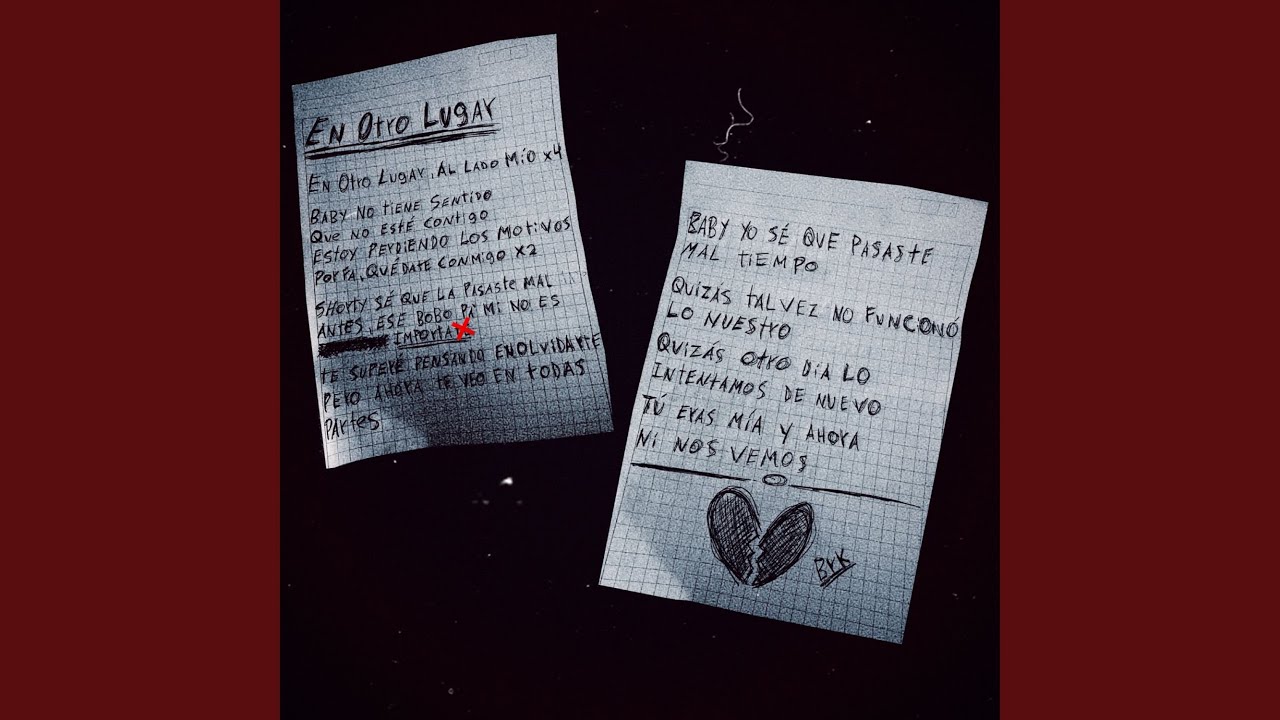 En Otro Lugar
En Otro Lugar, Al Lado Mío x4
Baby no tiene sentido
Que no esté contigo
Estoy perdiendo los motivos
Porfa, quédate conmigo x2
Shorty sé que la pisaste mal
antes, ese bobo pa' mi no es
importa
te superé pensando en olvidarte
pero ahora te veo en todas
partes
Baby yo sé que pasaste
mal tiempo
Quizás talvez no funcionó
lo nuestro
Quizás otro día lo
intentamos de nuevo
Tú eras mía y ahora
ni nos vemos
Brk